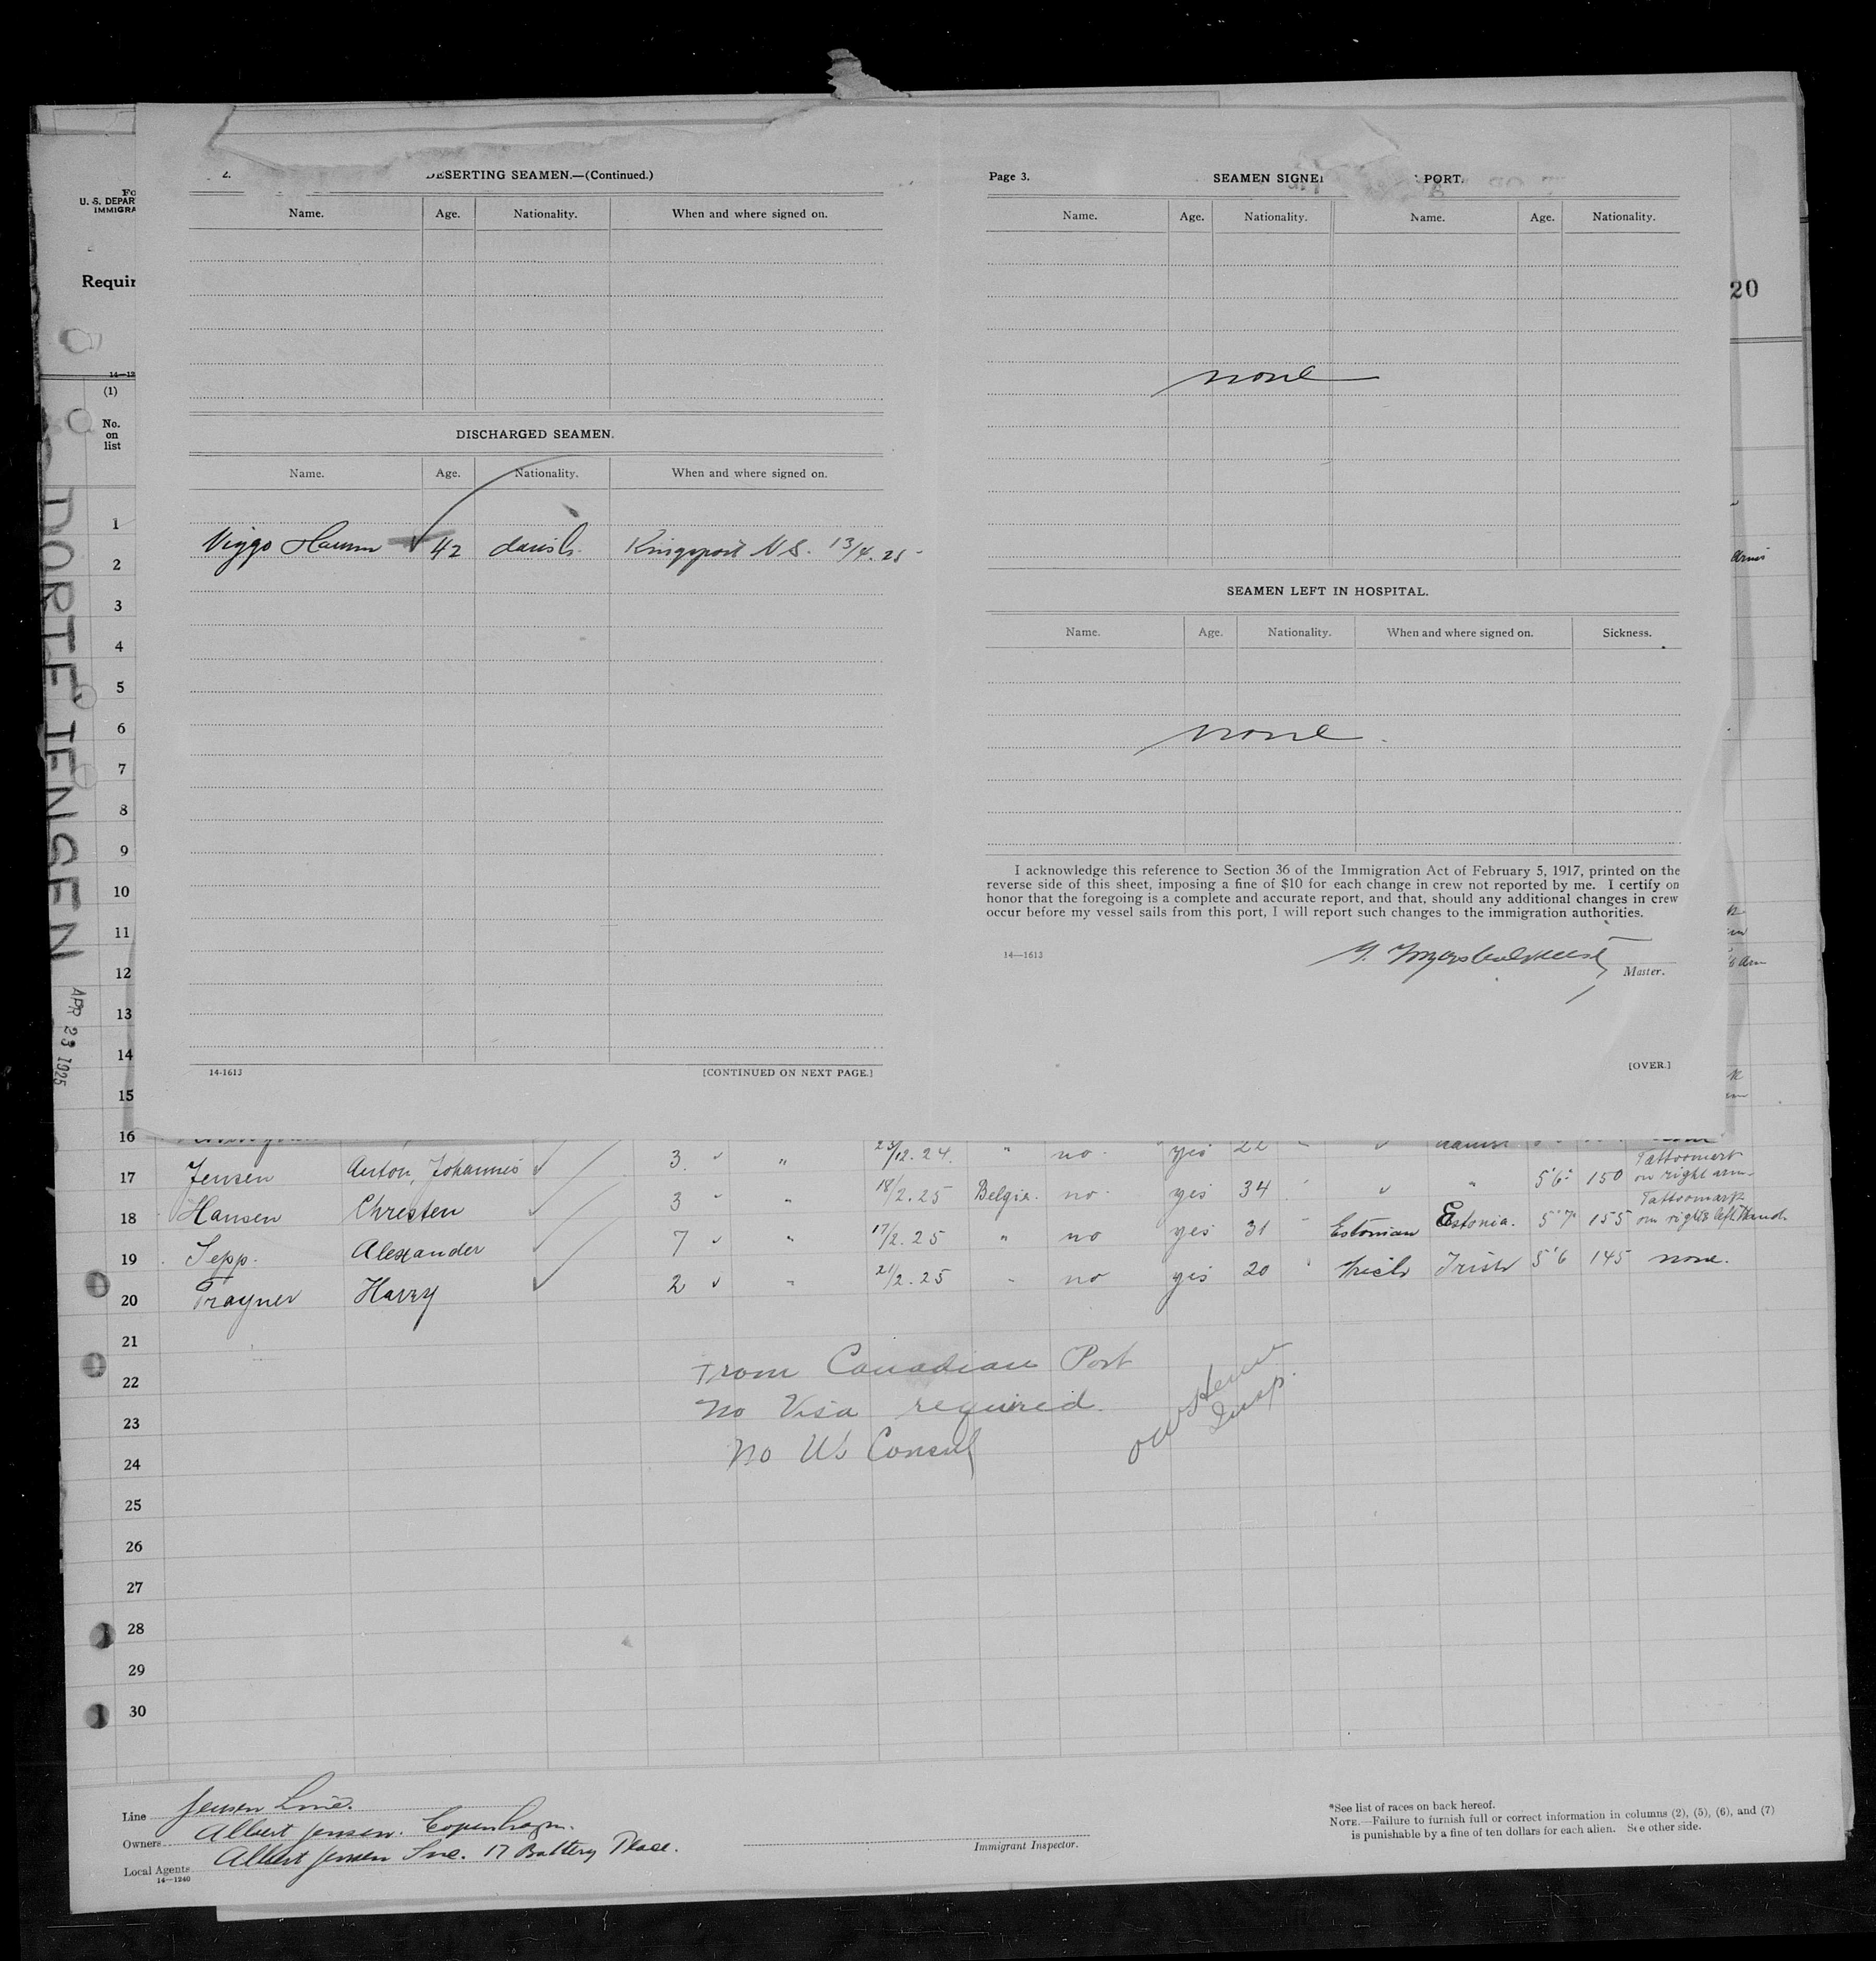 2. DESERTING SEAMEN.—(Continued.)
Name. Age. Nationality. When and where signed on.
DISCHARGED SEAMEN.
Name. Age. Nationality. When and where signed on.
Viggo Hamm 42 danish. Kingsport N.S. 13/4.25
14-1613 [CONTINUED ON NEXT PAGE.]
Page 3. SEAMEN SIGNE PORT.
Name. Age. Nationality. Name. Age. Nationality.
none
SEAMEN LEFT IN HOSPITAL.
Name. Age. Nationality. When and where signed on. Sickness.
none.
I acknowledge this reference to Section 36 of the Immigration Act of February 5, 1917, printed on the
reverse side of this sheet, imposing a fine of $10 for each change in crew not reported by me. I certify on
honor that the foregoing is a complete and accurate report, and that, should any additional changes in crew
occur before my vessel sails from this port, I will report such changes to the immigration authorities.
14—1613
Master.
[OVER.]
Fo
U. S. DEPAR
IMMIGRA
Requir
20
14—12
(1)
No.
on
list
DORTE JENSEN
APR 23 1925
1
2
3
4
5
6
7
8
9
10
11
12
13
14
15
16 23/12.24. " no. yes 22
17 Jensen Anton, Johannes 3 " 18/2.25 Belgia. no. yes 34 " 5'6" 150 Tattoomark on right arm.
18 Hansen Chresten 3 " 17/2.25 " no yes 31 Estonian Estonia. 5'7" 155 Tattoomark on right & left Hand.
19 Sepp. Alexander 7 " 21/2.25 " no yes 20 Irish Irish 5'6 145 none.
20 Trayner Harry 2
21
22
23
24
25
26
27
28
29
30
From Canadian Port
No Visa required.
No US Consul
Insp.
Line Jensen Line.
Owners Albert Jensen. Copenhagen.
Local Agents Albert Jensen Inc. 17 Battery Place.
14—1240
Immigrant Inspector.
*See list of races on back hereof.
NOTE.—Failure to furnish full or correct information in columns (2), (5), (6), and (7)
is punishable by a fine of ten dollars for each alien. See other side.